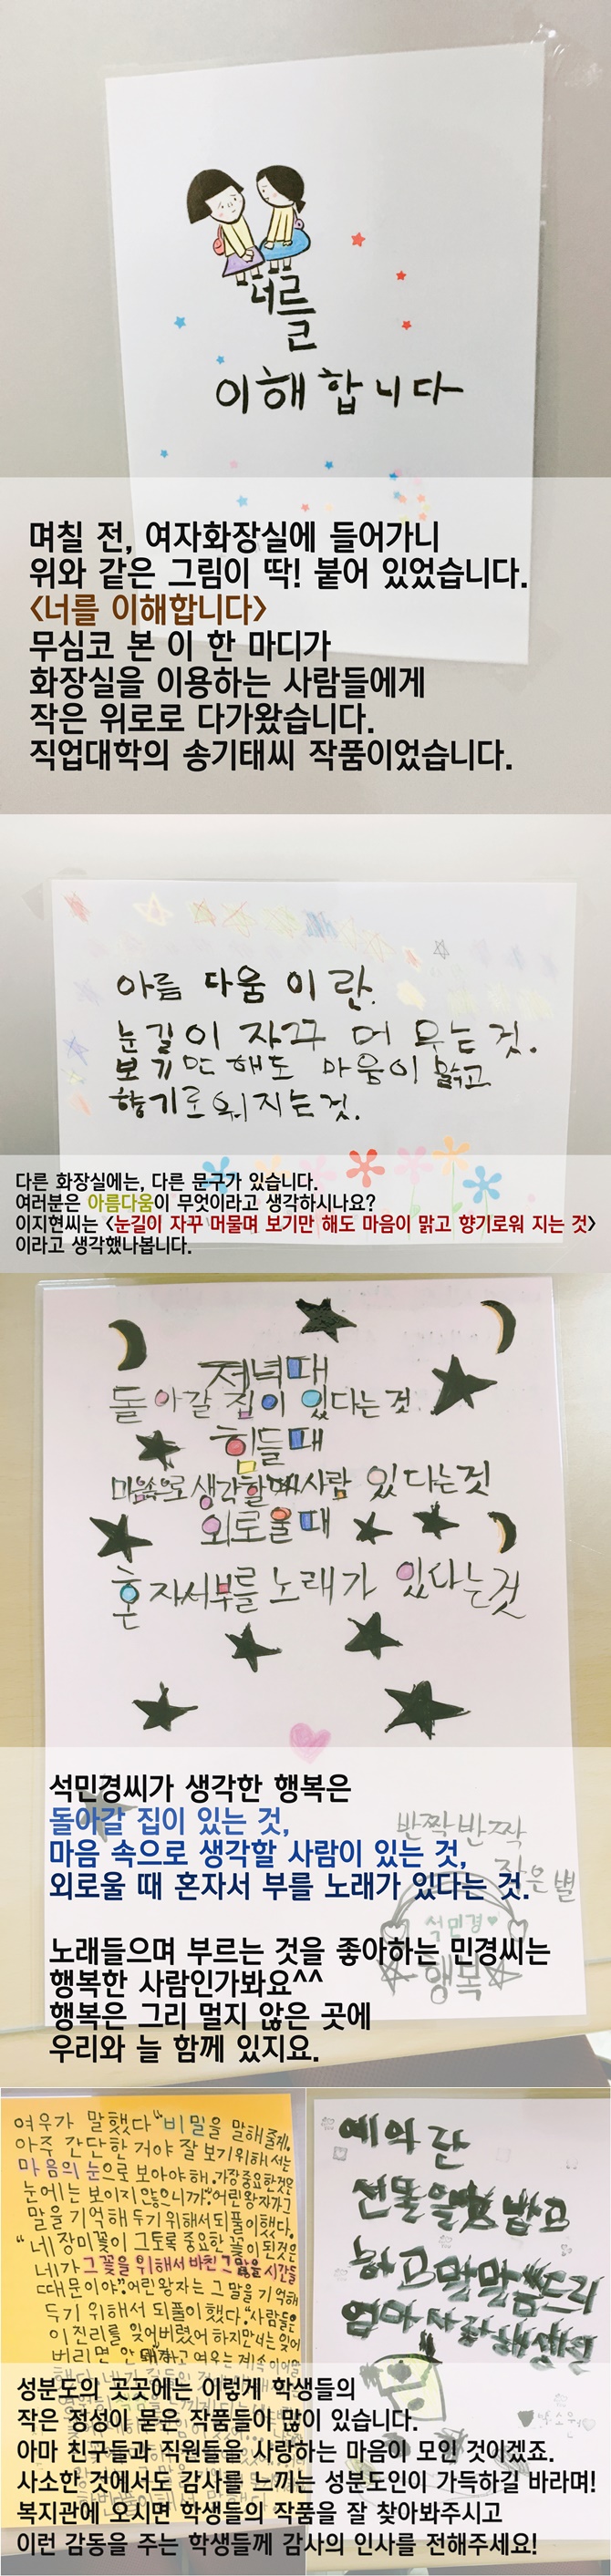 너를
이해합니다
며칠 전, 여자화장실에 들어가니
위와 같은 그림이 딱! 붙어 있었습니다.
<너를 이해합니다>
무심코 본 이 한 마디가
화장실을 이용하는 사람들에게
작은 위로로 다가왔습니다.
직업대학의 송기태씨 작품이었습니다.
아름 다움 이란.
눈길이 자꾸 머 무는 것.
보기만 해도 마음이 맑고
향기로워지는것.
다른 화장실에는, 다른 문구가 있습니다.
여러분은 아름다움이 무엇이라고 생각하시나요?
이지현씨는 <눈길이 자꾸 머물며 보기만 해도 마음이 맑고 향기로워 지는 것>
이라고 생각했나봅니다.
저녁때
돌아갈 집이 있다는것
힘들때
마음속으로 생각할 사람 있다는것
외로울때
혼자서부를 노래가 있다는것
석민경씨가 생각한 행복은
돌아갈 집이 있는 것,
마음 속으로 생각할 사람이 있는 것,
외로울 때 혼자서 부를 노래가 있다는 것.
반짝반짝
작은별
석민경
행복
노래들으며 부르는 것을 좋아하는 민경씨는
행복한 사람인가봐요^^
행복은 그리 멀지 않은 곳에
우리와 늘 함께 있지요.
여우가 말했다 "비밀을 말해줄게.
아주 간단한 거야 잘 보기위해서는
마음의 눈으로 보아야해. 가장중요한것은
눈에는 보이지않으니까." 어린왕자가그
말을 기억해 두기 위해서되풀이했다.
"네장미꽃이 그토록 중요한 꽃이 된것은
네가 그꽃을 위해서 바친 그많은시간들
때문이야". 어린왕자는 그말을 기억해
두기 위해서 되풀이했다. "사람들은
이진리를 잊어버렸어 하지만너는잊어
버리면 안 돼" 하고 여우는 계속 이어말
예의란
선물을 받고
하고말말씀드리
엄마사랑해
성분도의 곳곳에는 이렇게 학생들의
작은 정성이 묻은 작품들이 많이 있습니다.
아마 친구들과 직원들을 사랑하는 마음이 모인 것이겠죠.
사소한 것에서도 감사를 느끼는 성분도인이 가득하길 바라며!
복지관에 오시면 학생들의 작품을 잘 찾아봐주시고
이런 감동을 주는 학생들께 감사의 인사를 전해주세요!